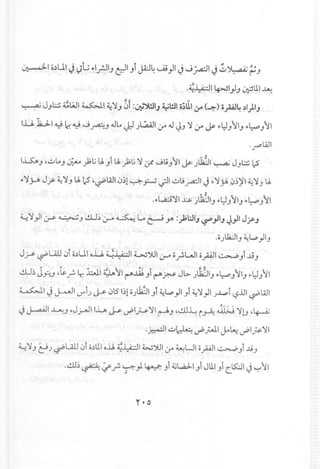 وثم تفصيلات في التصرف في الوقف بالنقل أو البيع والشراء تأتي في المادة الخمسين
بعد المئتين ولوائحها التنفيذية.
والمراد بالفقرة (جـ) من المادة الثانية والثلاثين: أن ولاية المحكمة العامة تتناول نصب
الأوصياء، والأولياء على من لا ولي له من القصار على مالهم وتصرفهم فيه بما فيه الحظ لهذا
القاصر.
كما تتناول نصب النظار على الأوقاف ممن لا ناظر لها أو لها ناظر معين ومات، ولهذه
الولاية الإذن لهؤلاء في التصرفات التي تستوجب إذن القاضي، كما لها ولاية عزل هؤلاء
الأوصياء، والأولياء، والنظار عند الاقتضاء.
وعزل الولي والوصي والناظر: هو فسخ ما بيده من ذلك وتنحيته عن الولاية
والوصاية والنظارة.
وقد أوضحت الفقرة العاشرة من اللائحة التنفيذية لهذه المادة أن للقاضي عزل
الأولياء، والأوصياء، والنظار حال عجزهم أو فقدهم الأهلية المعتبرة شرعاً، ويجوز ذلك
القاضي الذي أصدر الولاية أو الوصاية أو النظارة إذا كان على رأس العمل في المحكمة
نفسها، وإلا فلخلفه، ويجري بذلك، ويخضع الاعتراض على هذا العزل، وتعيد القاصر في
الاعتراض لتعليمات التمييز.
وقد أوضحت الفقرة السابعة من اللائحة التنفيذية لهذه المادة أن للقاضي رفع ولاية
الأب في النكاح أو المال أو الحضانة أو جميعها لموجب شرعي يقتضي ذلك.
٢٠٥